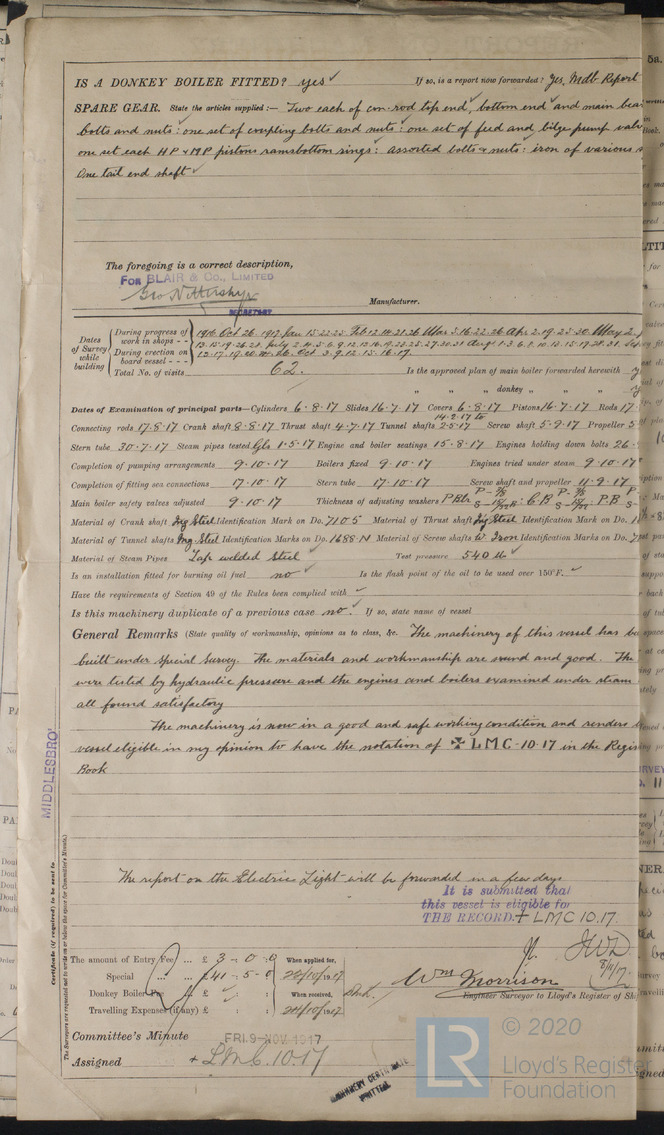 IS A DONKEY BOILER FITTED? yes ✓ If so, is a report now forwarded? Yes, Mdb Report
SPARE GEAR. State the articles supplied:— Two each of con-rod top end, bottom end and main bear
bolts and nuts: one set of coupling bolts and nuts: one set of feed and bilge pump valv
one set each HP & MP pistons ramsbottom rings: assorted bolts & nuts: iron of various s
One tail end shaft ✓
The foregoing is a correct description,
FOR BLAIR & Co., LIMITED
Manufacturer.
SECRETARY
Dates of Survey while building
During progress of work in shops - - 1916 Oct 26. 1917 Jan 15.22.25 Feb 12.14.21.26 Mar 3.16.22.26 Apr 2.19.23.30 May 2.
During erection on board vessel - - -
12.17.19.20. Oct 3.9.12.15.16.17.
Total No. of visits 62. Is the approved plan of main boiler forwarded herewith
" " " donkey " " "
Dates of Examination of principal parts—Cylinders 6.8.17 Slides 16.7.17 Covers 6.8.17 Pistons 16.7.17 Rods 17.
14.2.17 to
Connecting rods 17.8.17 Crank shaft 8.8.17 Thrust shaft 4.7.17 Tunnel shafts 2.5.17 Screw shaft 5.9.17 Propeller 5
Stern tube 30.7.17 Steam pipes tested Gls 1.5.17 Engine and boiler seatings 15.8.17 Engines holding down bolts 26.
Completion of pumping arrangements 9.10.17 Boilers fixed 9.10.17 Engines tried under steam 9.10.17
Completion of fitting sea connections 17.10.17 Stern tube 17.10.17 Screw shaft and propeller 11.9.17
Main boiler safety valves adjusted 9.10.17 Thickness of adjusting washers
Material of Crank shaft Ing Steel Identification Mark on Do. 7105 Material of Thrust shaft Ing Steel Identification Mark on Do.
Material of Tunnel shafts Ing. Steel Identification Marks on Do. 1688 N Material of Screw shafts W Iron Identification Marks on Do. 7
Material of Steam Pipes Lap welded Steel Test pressure 540 lb ✓
Is an installation fitted for burning oil fuel no ✓ Is the flash point of the oil to be used over 150°F. ✓
Have the requirements of Section 49 of the Rules been complied with ✓
Is this machinery duplicate of a previous case no. ✓ If so, state name of vessel
General Remarks (State quality of workmanship, opinions as to class, &c. The machinery of this vessel has be
built under special survey. The materials and workmanship are sound and good. The
were tested by hydraulic pressure and the engines and boilers examined under steam
all found satisfactory
The machinery is now in a good and safe working condition and renders
vessel eligible in my opinion to have the notation of ✠ LMC-10-17 in the Regis
Book
MIDDLESBRO'
Certificate (if required) to be sent to
The Surveyors are requested not to write on or below the space for Committee's Minute.
The report on the Electric Light will be forwarded in a few days
It is submitted that
this vessel is eligible for
THE RECORD. + LMC 10.17.
JWD
8/11/17.
The amount of Entry Fee ... £ 3 - 0 - 0 When applied for,
Special ... ... £ 41 - 5 - 0
Donkey Boiler Fee ... £ : : When received,
Travelling Expenses (if any) £ : :
Wm Morrison
Engineer Surveyor to Lloyd's Register of Sh
Committee's Minute FRI. 9-NOV. 1917
Assigned + LMC. 10.17
MACHINERY CERTIFICATE
WRITTEN
LR © 2020
Lloyd's Register
Foundation